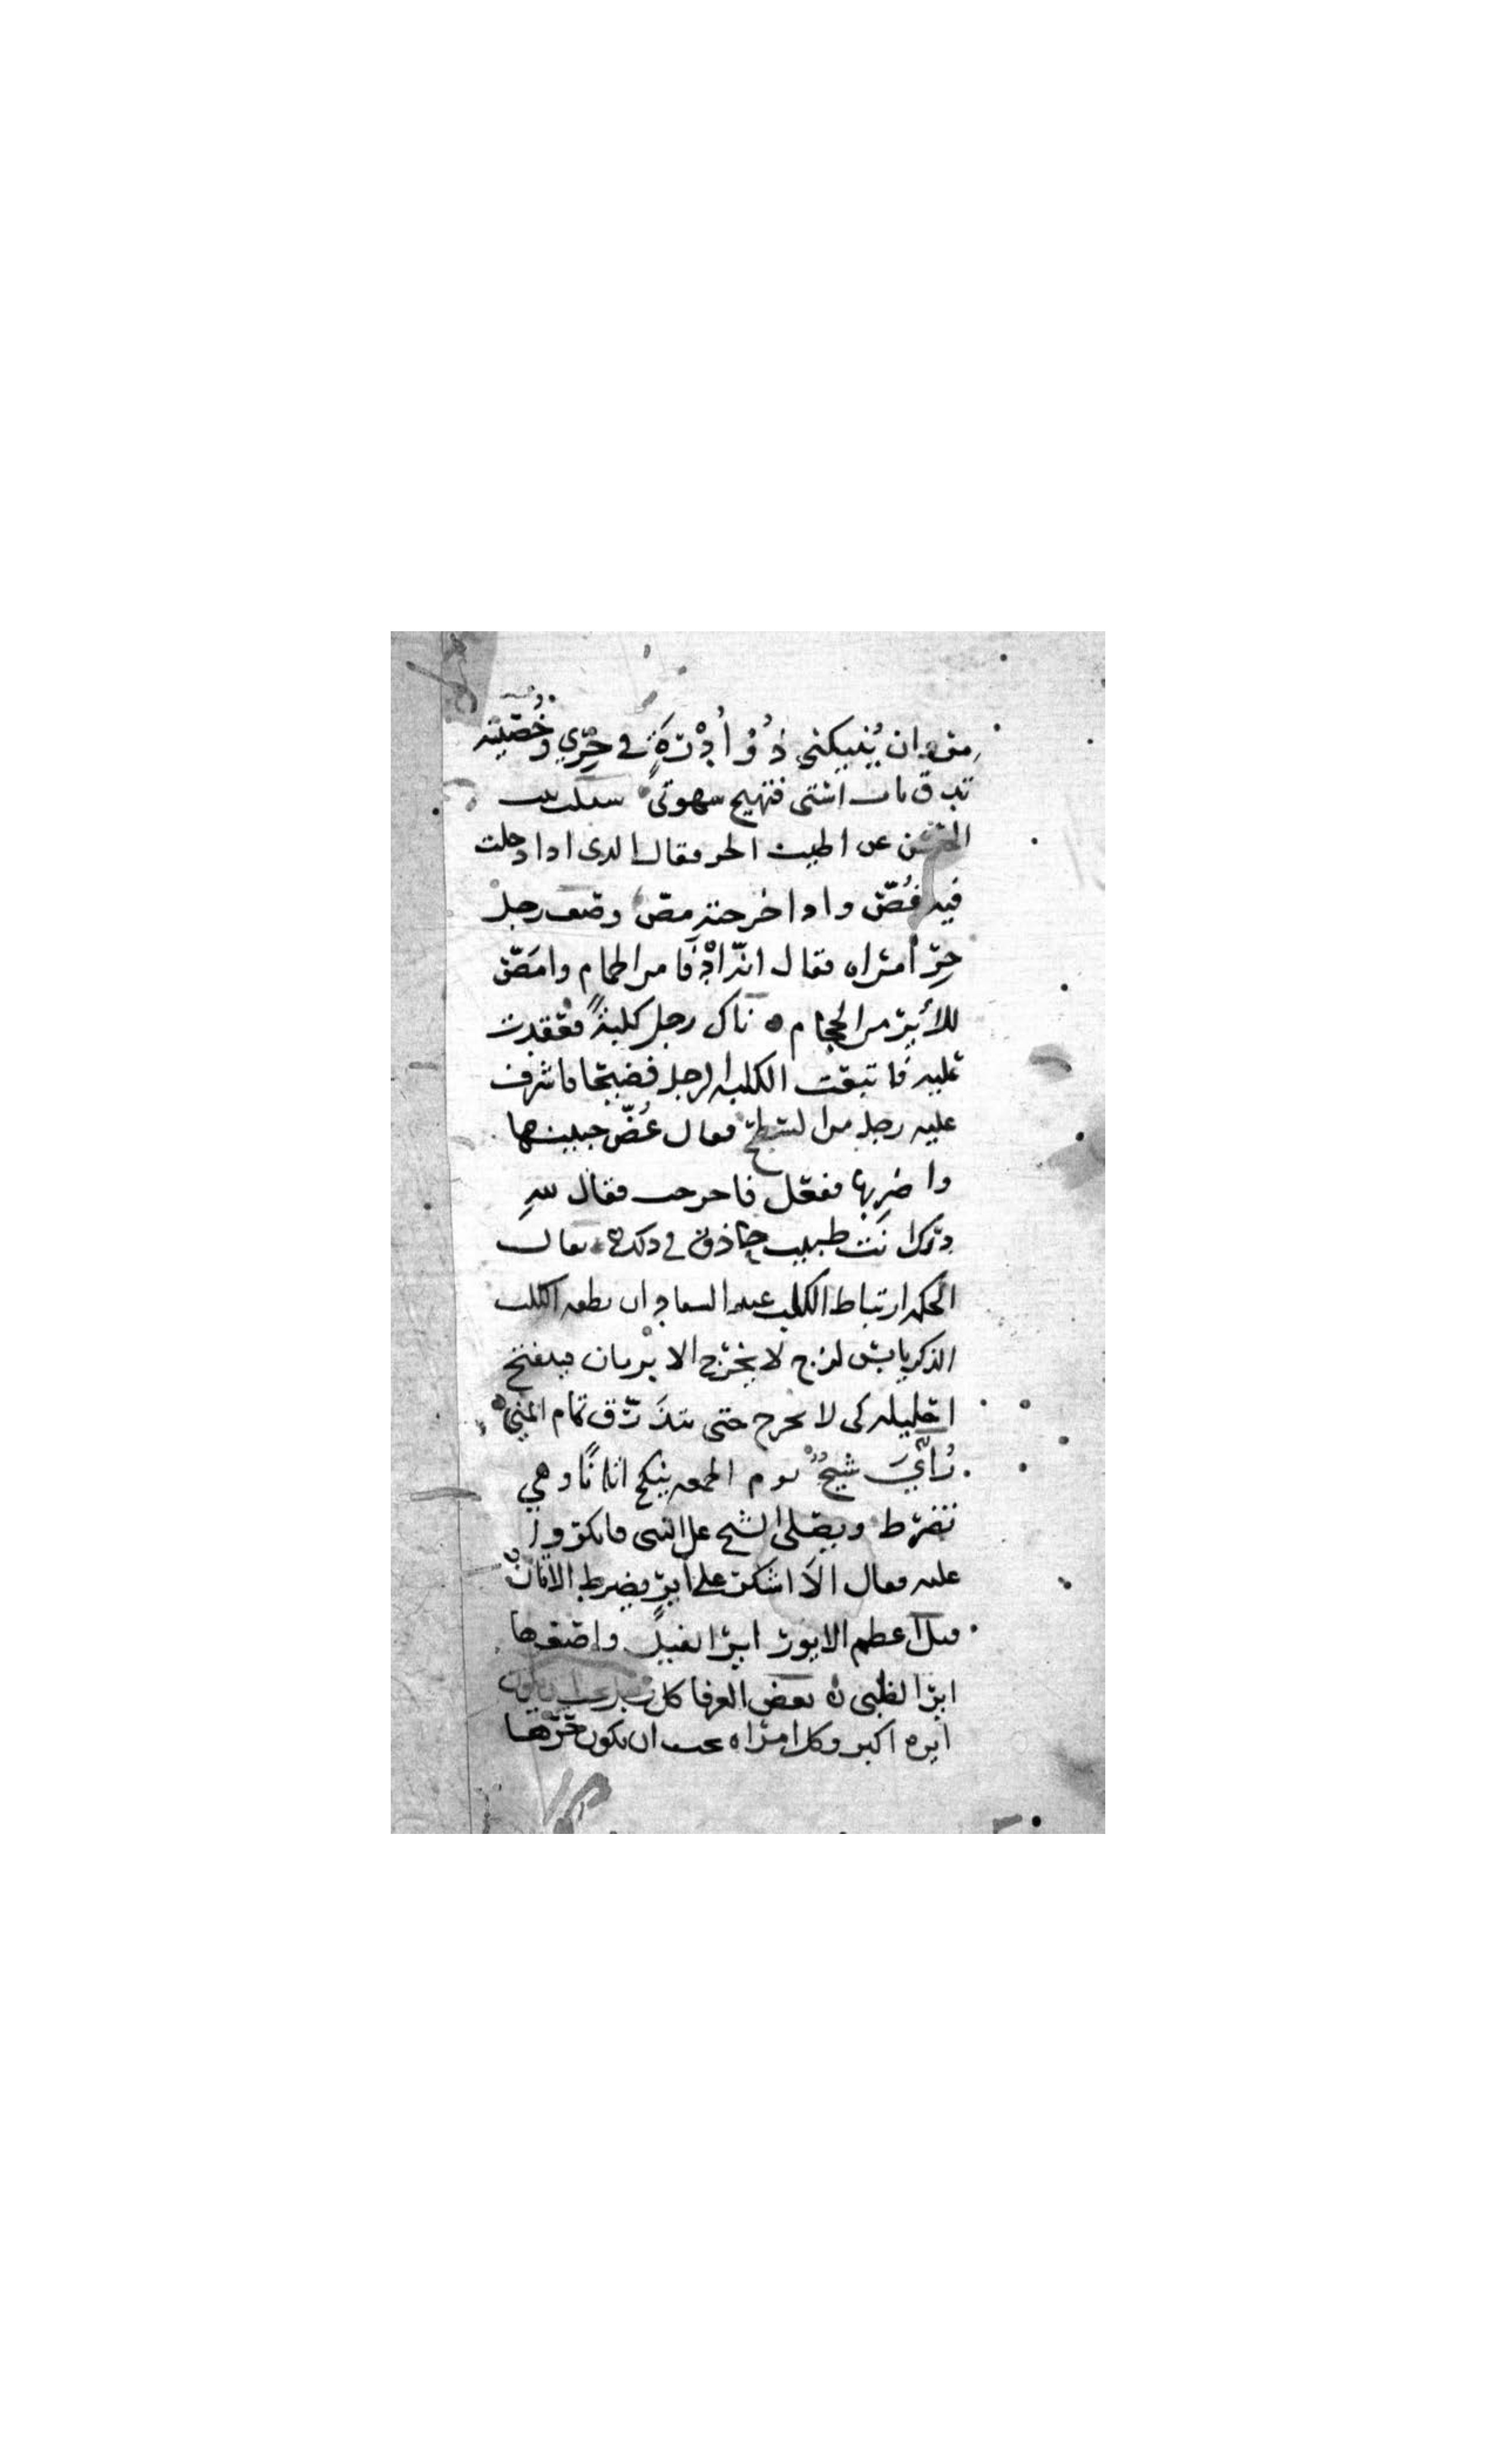 ان ينيكني ذُوْ أُدْرَةٍ في حِرِّي وخُصْيَيْه
تدق باب استى فتهيج سهوتى سيلت بنت
عن اطيب الحر فقال الدى ادا دخلت
فيه غُصّ وادا اخرجته مصّ وصف رجل
حِرّ امراه فقال انه ادْفَا من الحمام وامَصّ
للأير من الحجام ناك رجل كلبةً فعقدت
عليه فاتبعت الكلبه الرجل فاشرف
عليه رجل من السطح فقال عُضّ جبينها
واضربها ففعل فاخرجت فقال لله
درّك انت طبيب حاذق في دلك قال
الحكما ارتباط الكلب عند السفاد ان نطفه الكلب
الذكر يابس لزج لا يخرج الا بزمان فينفتح
احليله كى لا يخرج حتى يتذرّق تمام المني
رُأيَ شيخٌ يوم الجمعه ينيك اتانًا وهي
تضرط ويصلى الشيخ على النبى فانكروا
عليه فقال الا اشكر على اير يضرط الاتان
قيل اعظم الايور اير الفيل واصغرها
اير الظبى بعض العرفا كل
ايره اكبر وكل امراه تحب ان يكون حِرّها